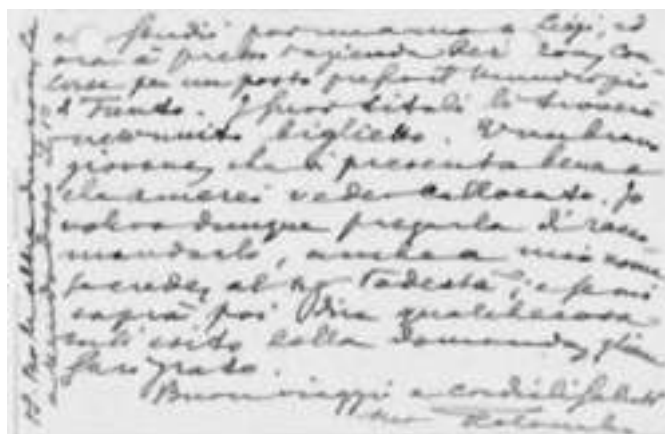 e studiò per un anno a Lipsia, ed
ora à presso
corso per un posto presso il Municipio
di Trento. I suoi titoli li troverà
nell'unito biglietto. È un bravo
giovane, che si presenta bene e
che amerei veder collocato. Io
volevo dunque pregarla di racco
mandarlo, anche a mio nome
se crede, al Sig. Podestà, e se mi
saprà poi dire qualche cosa
sull'esito della domanda, gliene
sarò grato.
Buon viaggio e cordiali saluti
suo